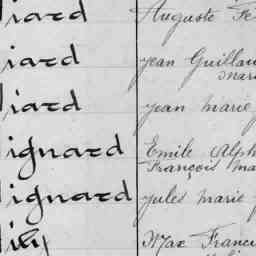 iard Auguste Fe
iard Jean Guillau
Mar
iard Jean Marie
ignard Emile Alph
François Ma
ignard Jules Marie
Max Franci